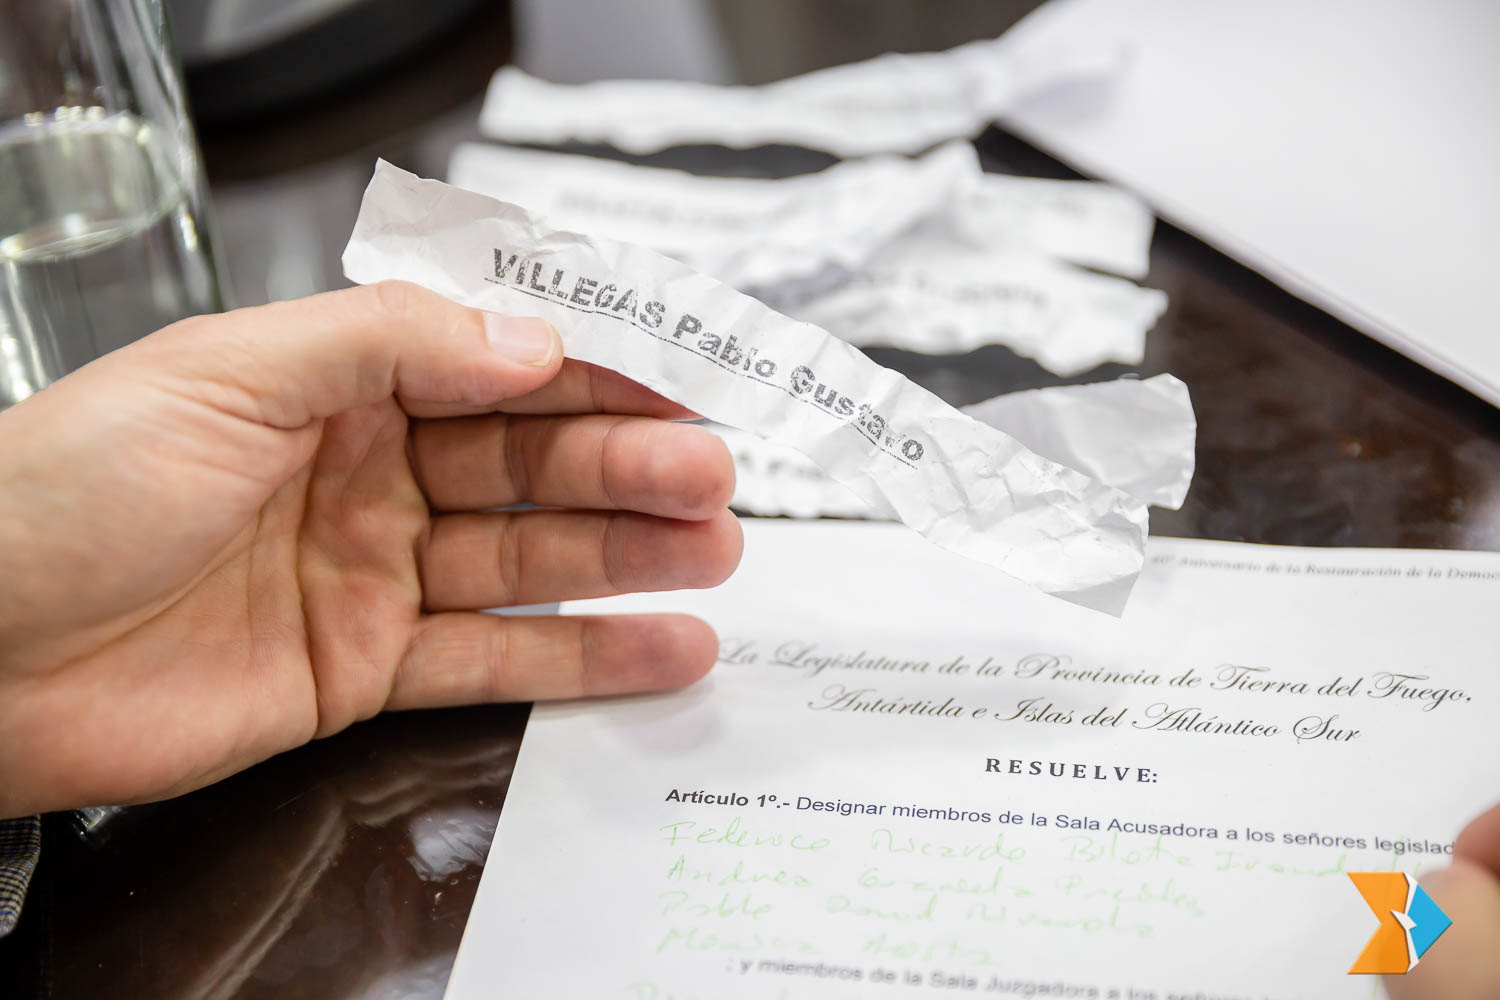 VILLEGAS Pablo Gustavo
40º Aniversario de la Restauración de la Democ
La Legislatura de la Provincia de Tierra del Fuego,
Antártida e Islas del Atlántico Sur
RESUELVE:
Artículo 1º.- Designar miembros de la Sala Acusadora a los señores legislad
Federico Ricardo Bilota Ivand
Andrea Graciela Freites
Pablo Daniel
Monica Acosta
; y miembros de la Sala Juzgadora a los señores